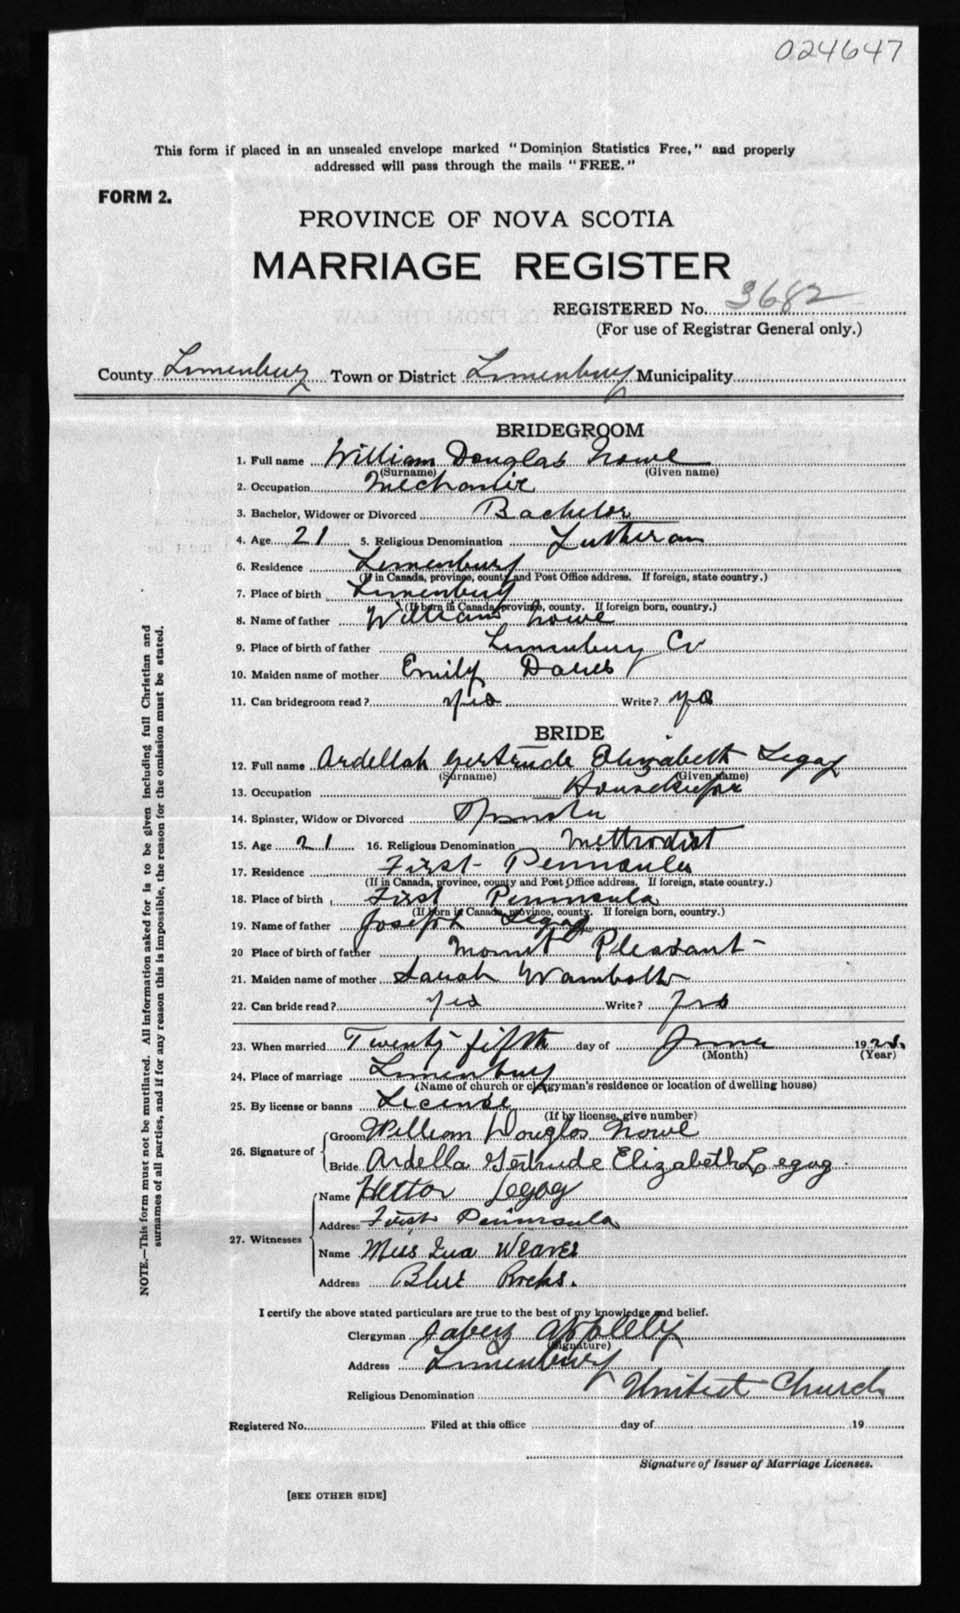 024647
This form if placed in an unsealed envelope marked "Dominion Statistics Free," and properly
addressed will pass through the mails "FREE."
FORM 2.
PROVINCE OF NOVA SCOTIA
MARRIAGE REGISTER
REGISTERED No. 3682
(For use of Registrar General only.)
County Lunenburg Town or District Lunenburg Municipality
BRIDEGROOM
1. Full name William Douglas Nowe
(Surname) (Given name)
2. Occupation Mechanic
3. Bachelor, Widower or Divorced Bachelor
4. Age 21 5. Religious Denomination Lutheran
6. Residence Lunenburg
(If in Canada, province, county and Post Office address. If foreign, state country.)
7. Place of birth Lunenburg
(If born in Canada, province, county. If foreign born, country.)
8. Name of father William Nowe
9. Place of birth of father Lunenburg Co
10. Maiden name of mother Emily
11. Can bridegroom read? Yes Write? Yes
BRIDE
12. Full name Ardellah Gertrude Elizabeth Legag
(Surname) (Given name)
13. Occupation Housekeeper
14. Spinster, Widow or Divorced Spinster
15. Age 21 16. Religious Denomination Methodist
17. Residence First Peninsula
(If in Canada, province, county and Post Office address. If foreign, state country.)
18. Place of birth First Peninsula
(If born in Canada, province, county. If foreign born, country.)
19. Name of father Joseph Legag
20 Place of birth of father Mount Pleasant
21. Maiden name of mother Sarah Wambolt
22. Can bride read? Yes Write? Yes
23. When married Twenty fifth day of June 192
(Month) (Year)
24. Place of marriage Lunenburg
(Name of church or clergyman's residence or location of dwelling house)
25. By license or banns License
(If by license, give number)
26. Signature of
Groom William Douglas Nowe
Bride Ardella Gertrude Elizabeth Legag.
27. Witnesses
Name Hector Legag
Address First Peninsula
Name Miss Weaver
Address Blue Rocks.
I certify the above stated particulars are true to the best of my knowledge and belief.
Clergyman Jabez Appleby
(Signature)
Address Lunenburg
Religious Denomination United Church
Registered No. Filed at this office day of 19
Signature of Issuer of Marriage Licenses.
[SEE OTHER SIDE]
NOTE.—This form must not be mutilated. All information asked for is to be given including full Christian and
surnames of all parties, and if for any reason this is impossible, the reason for the omission must be stated.